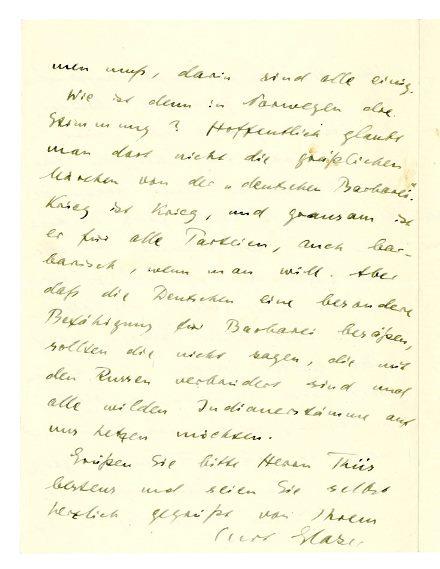 men muß, darin sind alle einig.
Wie ist denn in Norwegen die
Stimmung? Hoffentlich glaubt
man dort nicht die gräßlichen
Märchen von der „deutschen Barbarei“.
Krieg ist Krieg, und grausam ist
er für alle Parteien, auch bar-
barisch, wenn man will. Aber
daß die Deutschen eine besondere
Befähigung für Barbarei besäßen,
sollten die nicht sagen, die mit
den Russen verbündet sind und
alle wilden Indianerstämme auf
uns hetzen möchten.
Grüßen Sie bitte Herrn Thiis
bestens und seien Sie selbst
herzlich gegrüßt von Ihrem
Curt Glaser